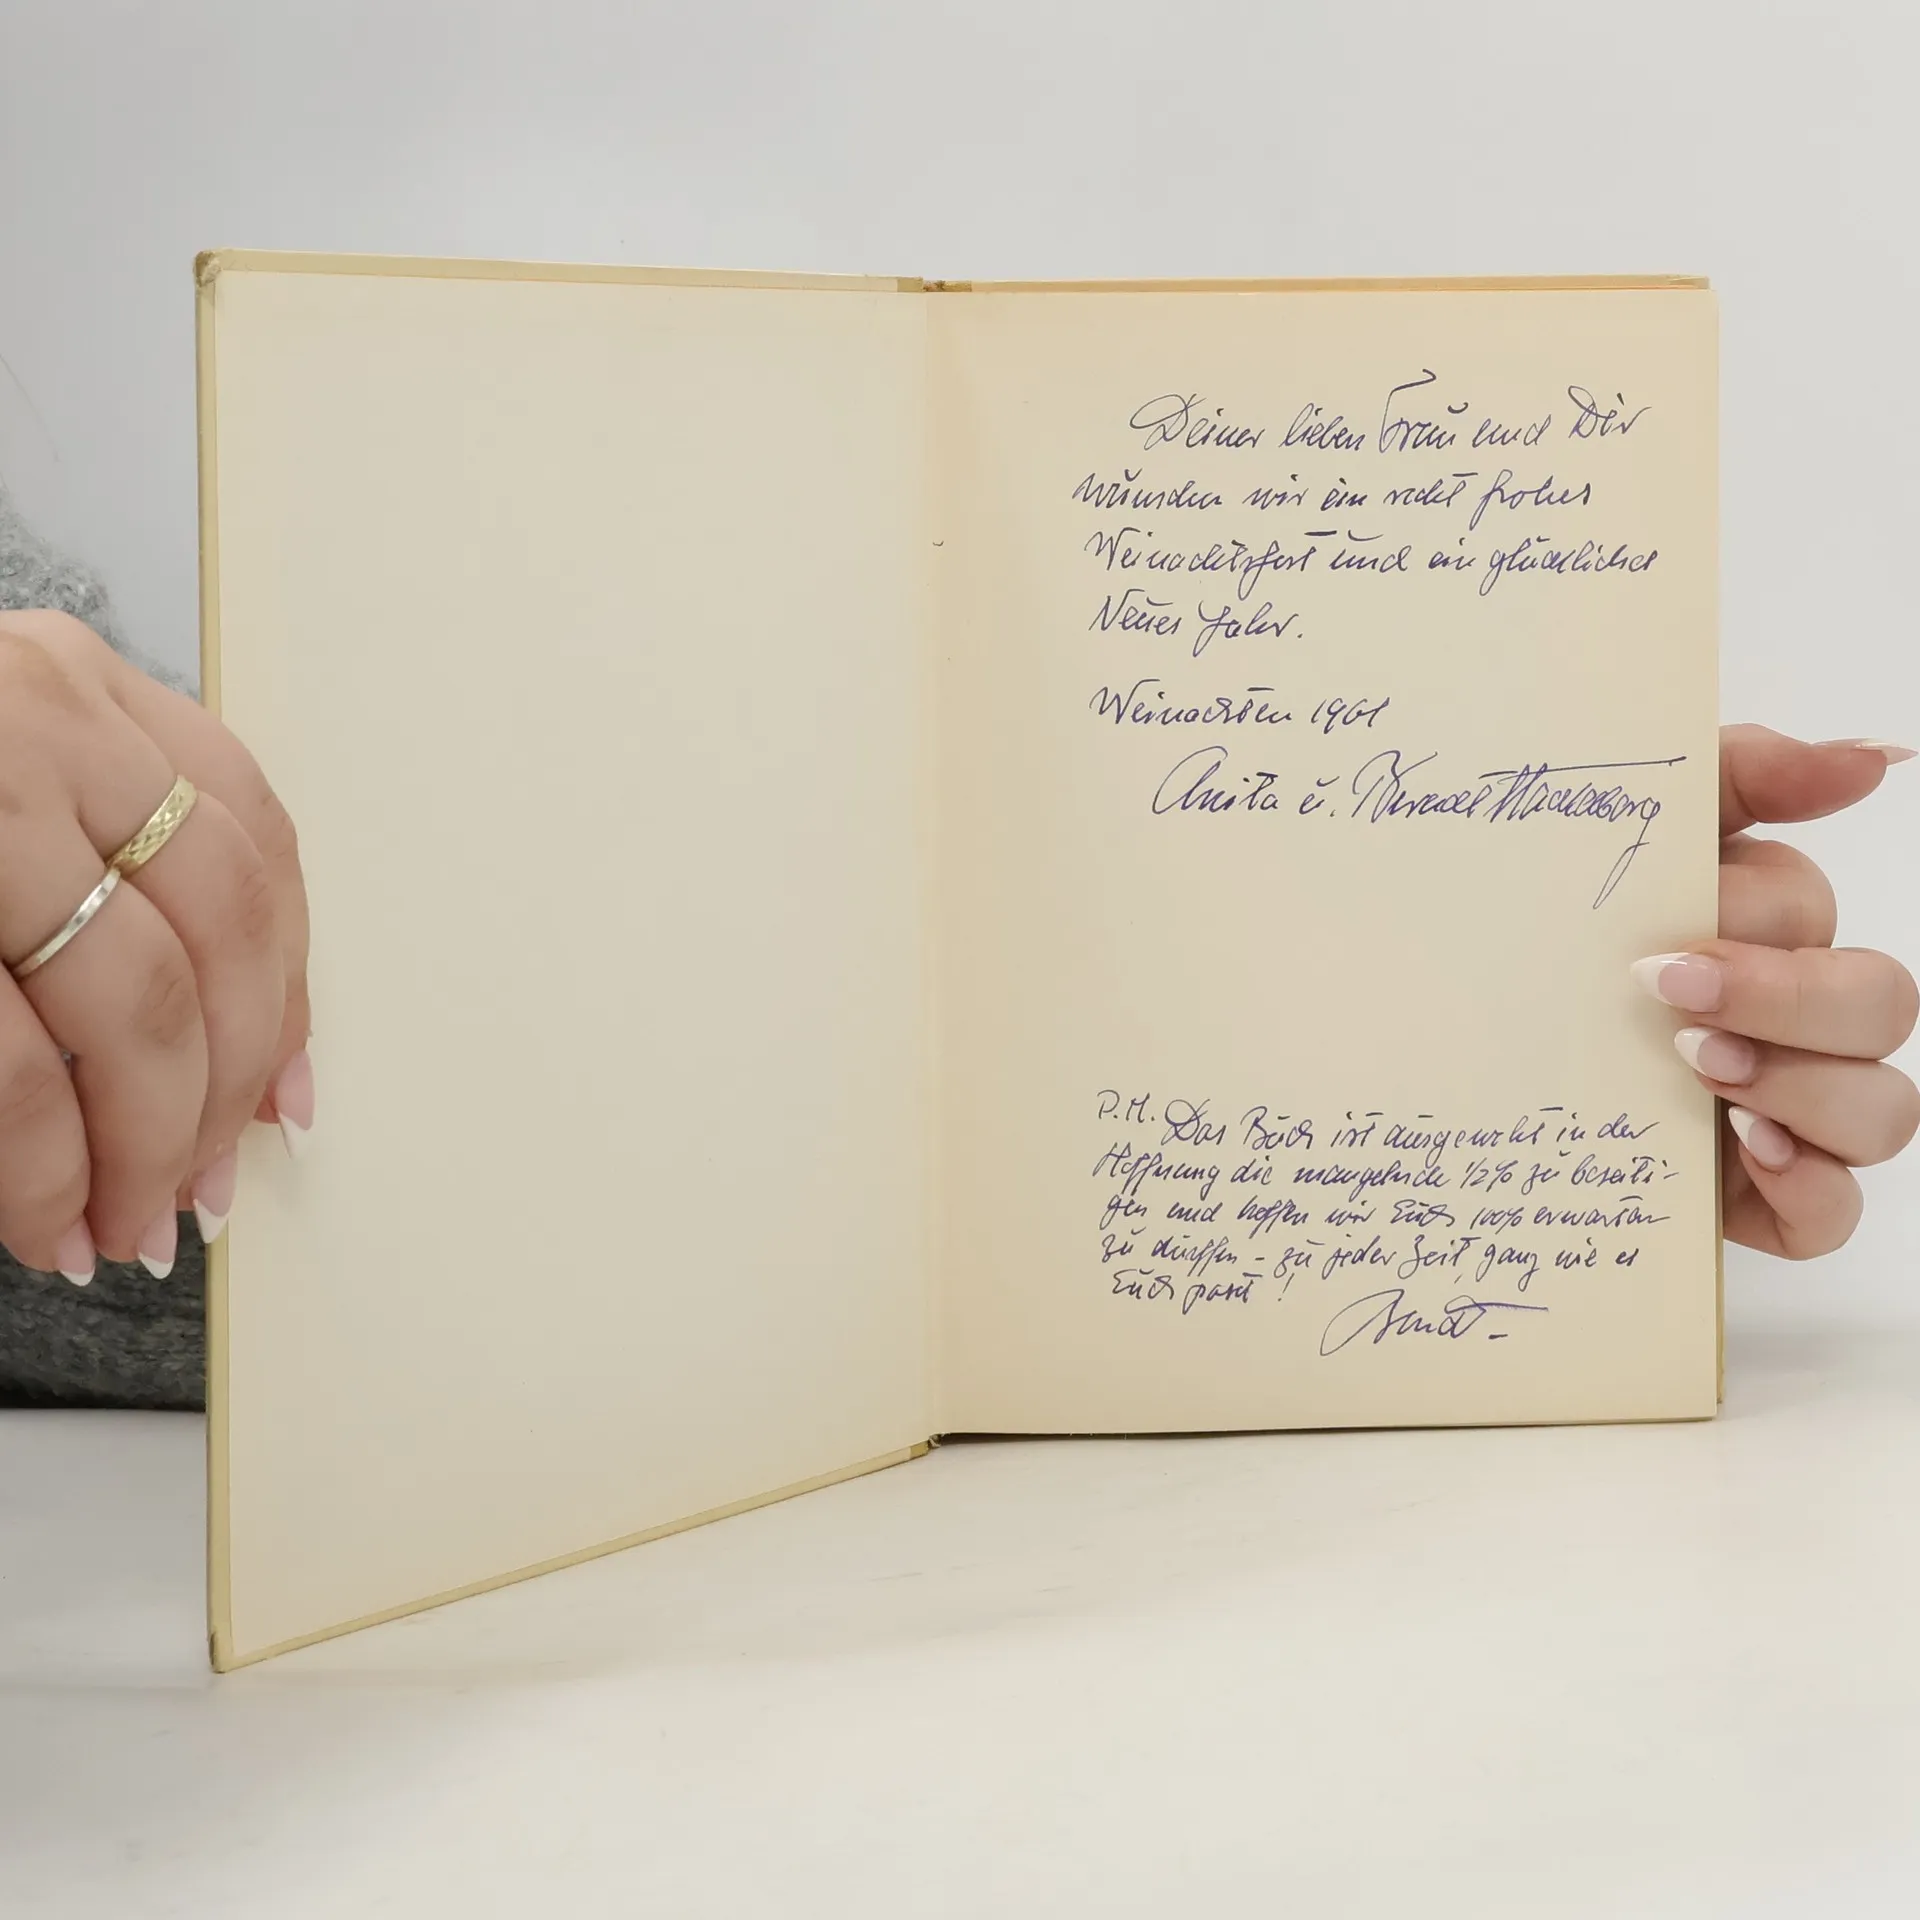 Deiner lieben Frau und Dir
wünschen wir ein recht frohes
Weinachtsfest und ein glückliches
Neues Jahr.
Weinachten 1961
Anita u.
P.M. Das Buch ist ausgesucht in der
Hoffnung die mangelnde 1/2% zu beseiti-
gen und hoffen wir Euch 100% erwarten
zu dürffen - zu jeder Zeit, ganz wie es
Euch passt!